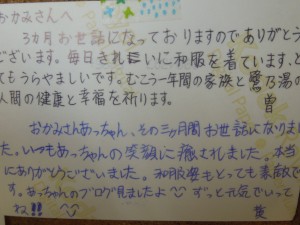 おかみさんへ
3カ月お世話になっておりますのでありがとう
ございます。毎日きれいに和服を着ています、と
てもうらやましいです。むこう一年間の家族と鷺乃湯の
人間の健康と幸福を祈ります。
曽
おかみさんあっちゃん、その三ヶ月間お世話になりまし
た。いつもあっちゃんの笑顔に癒されました。本当
にありがとうございました。和服姿もとっても素敵で
す。あっちゃんのブログ見ましたよ
ずっと元気でいって
ね!!